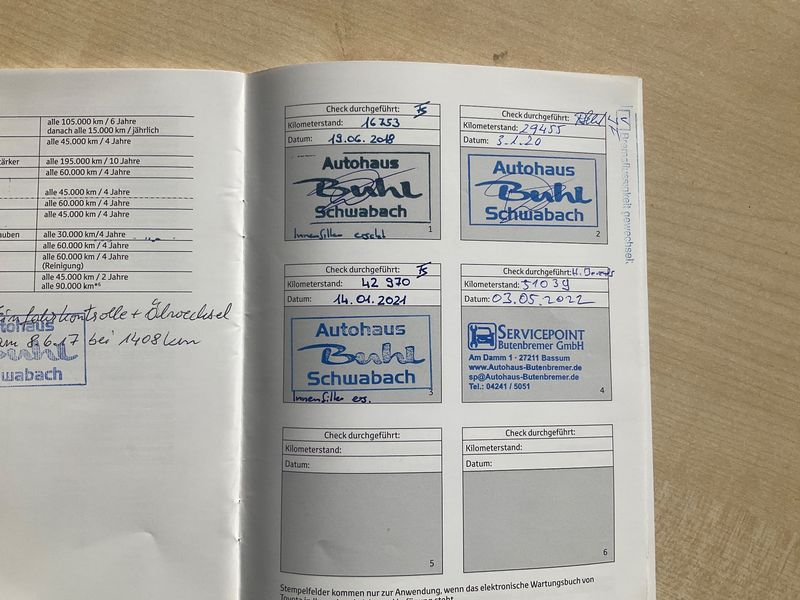 alle 105.000 km / 6 Jahre
danach alle 15.000 km / jährlich
alle 45.000 km / 4 Jahre
tärker
alle 195.000 km / 10 Jahre
alle 60.000 km / 4 Jahre
alle 45.000 km / 4 Jahre
alle 60.000 km / 4 Jahre
alle 45.000 km / 4 Jahre
auben
alle 30.000 km / 4 Jahre
alle 60.000 km / 4 Jahre
alle 60.000 km / 4 Jahre
(Reinigung)
alle 45.000 km / 2 Jahre
alle 90.000 km*6
Einfahrkontrolle + Ölwechsel
am 8.6.17 bei 1408 km
tohaus
Buhl
wabach
Check durchgeführt:
Kilometerstand: 16753
Datum: 19.06.2018
Autohaus
Buhl
Schwabach
Innenfilter ersetzt
1
Check durchgeführt:
Kilometerstand: 29455
Datum: 3.1.20
Autohaus
Buhl
Schwabach
2
Bremsflüssigkeit gewechselt
Check durchgeführt:
Kilometerstand: 42 970
Datum: 14.01.2021
Autohaus
Buhl
Schwabach
Innenfilter ers.
3
Check durchgeführt:
Kilometerstand: 51039
Datum: 03.05.2022
SERVICEPOINT
Butenbremer GmbH
Am Damm 1 · 27211 Bassum
www.Autohaus-Butenbremer.de
sp@Autohaus-Butenbremer.de
Tel.: 04241 / 5051
4
Check durchgeführt:
Kilometerstand:
Datum:
5
Check durchgeführt:
Kilometerstand:
Datum:
6
Stempelfelder kommen nur zur Anwendung, wenn das elektronische Wartungsbuch von